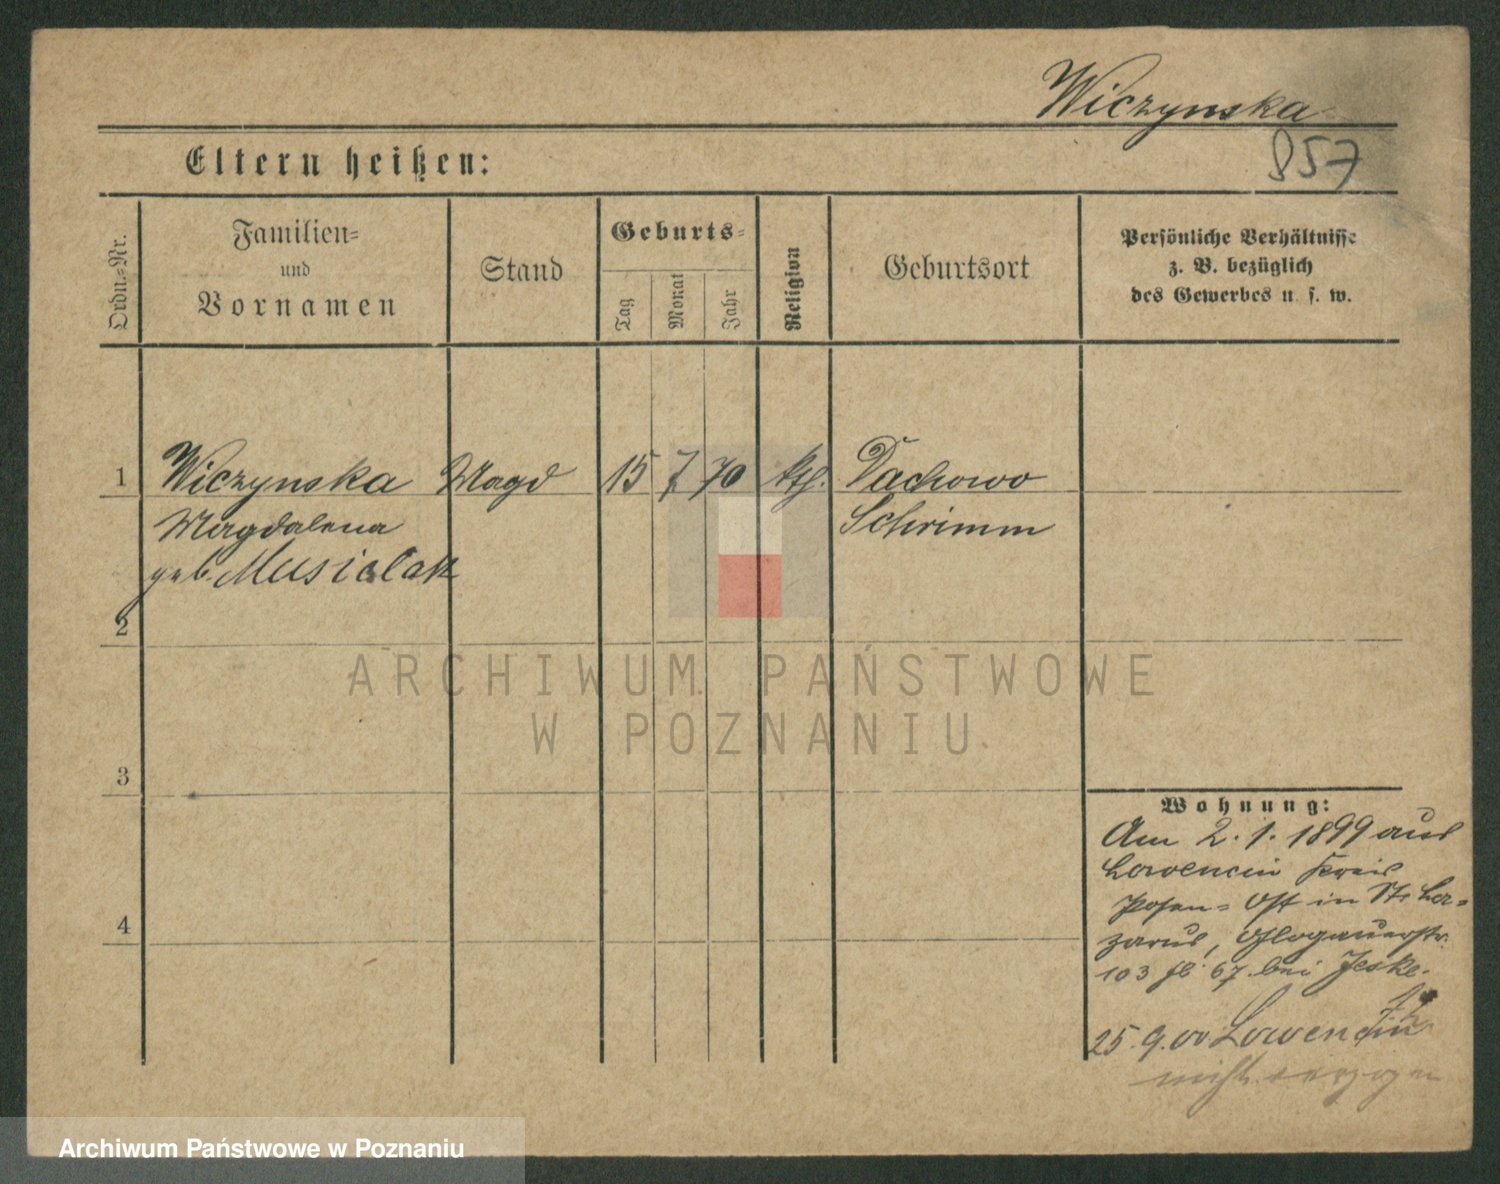 Wiczynska
857
Eltern heißen:
Ordn.=Nr.
Familien=
und
Vornamen
Stand
Geburts=
Tag
Monat
Jahr
Religion
Geburtsort
Persönliche Verhältnisse
z. B. bezüglich
des Gewerbes u. s. w.
1 Wiczynska Magd 15 7 70 kth. Dachowo
Magdalena Schrimm
geb. Musielak
2
3
4
Wohnung:
Am 2. 1. 1899 aus
Lawencin Kreis
Posen= Ost in St. La=
zarus, Glogauerstr.
103 67 bei Jeske.
25. 9. 00 Lawencin
nicht verzogen
ARCHIWUM PAŃSTWOWE
W POZNANIU
Archiwum Państwowe w Poznaniu